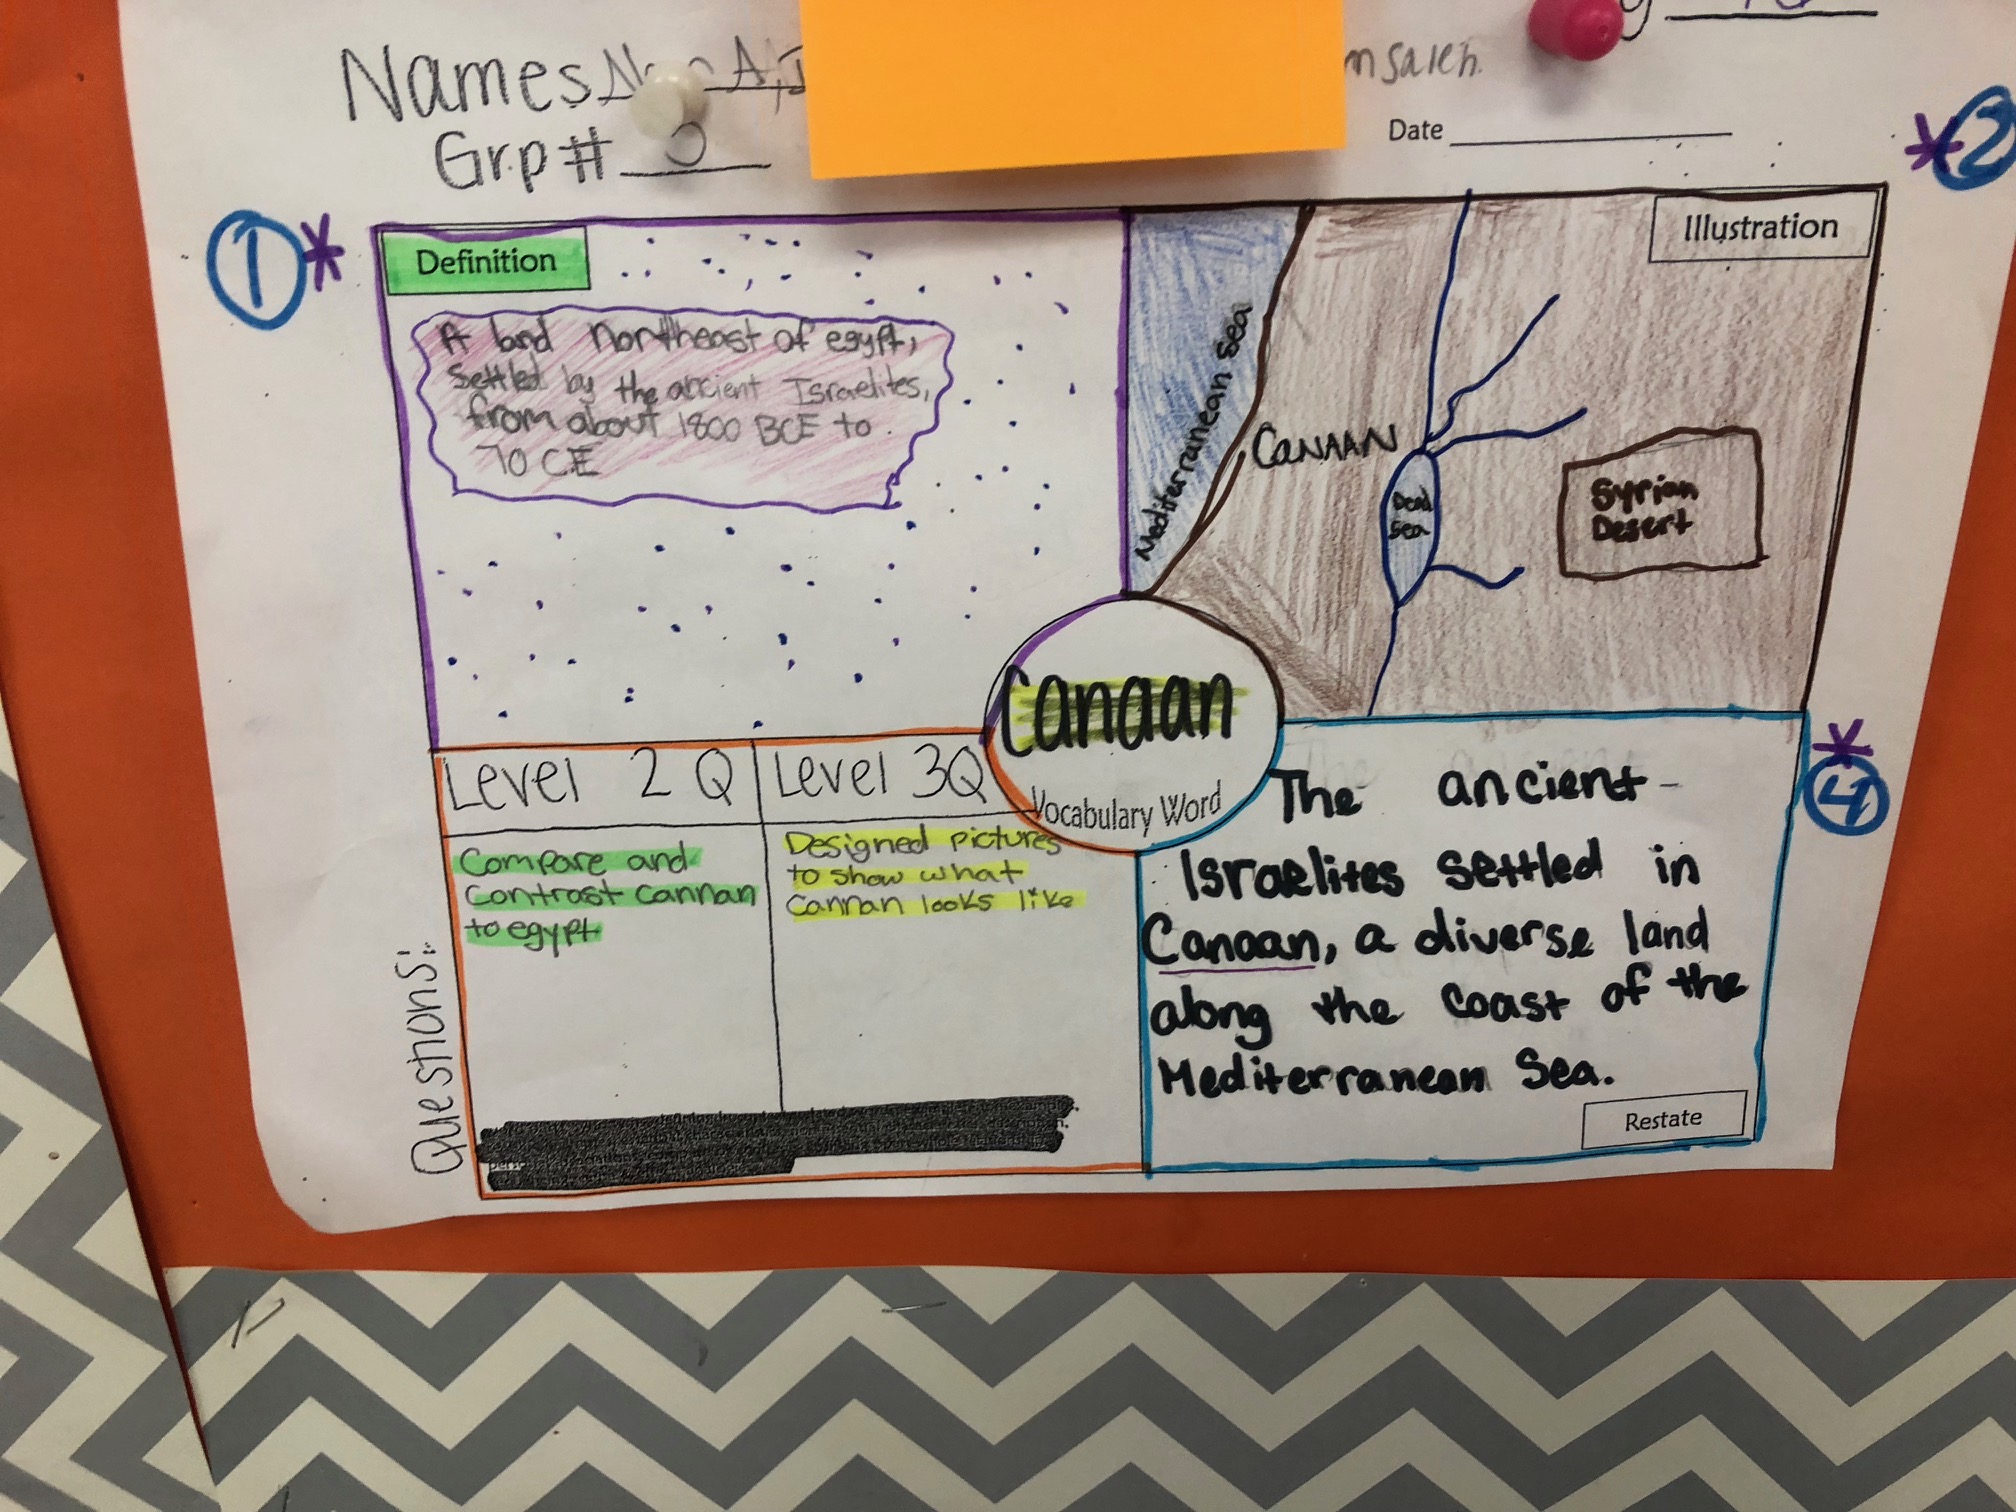 Names
A,
saleh.
Grp#
Date
1 *
* 2
Definition
A land northeast of egypt,
settled by the ancient Israelites,
from about 1800 BCE to
70 CE
Illustration
Mediterranean Sea
CANAAN
Dead
Sea
Syrian
Desert
Canaan
Vocabulary Word
Questions:
Level 2 Q
Compare and
contrast cannan
to egypt
Level 3Q
Designed pictures
to show what
Cannan looks like
*
4
The ancient
Israelites settled in
Canaan, a diverse land
along the coast of the
Mediterranean Sea.
Restate